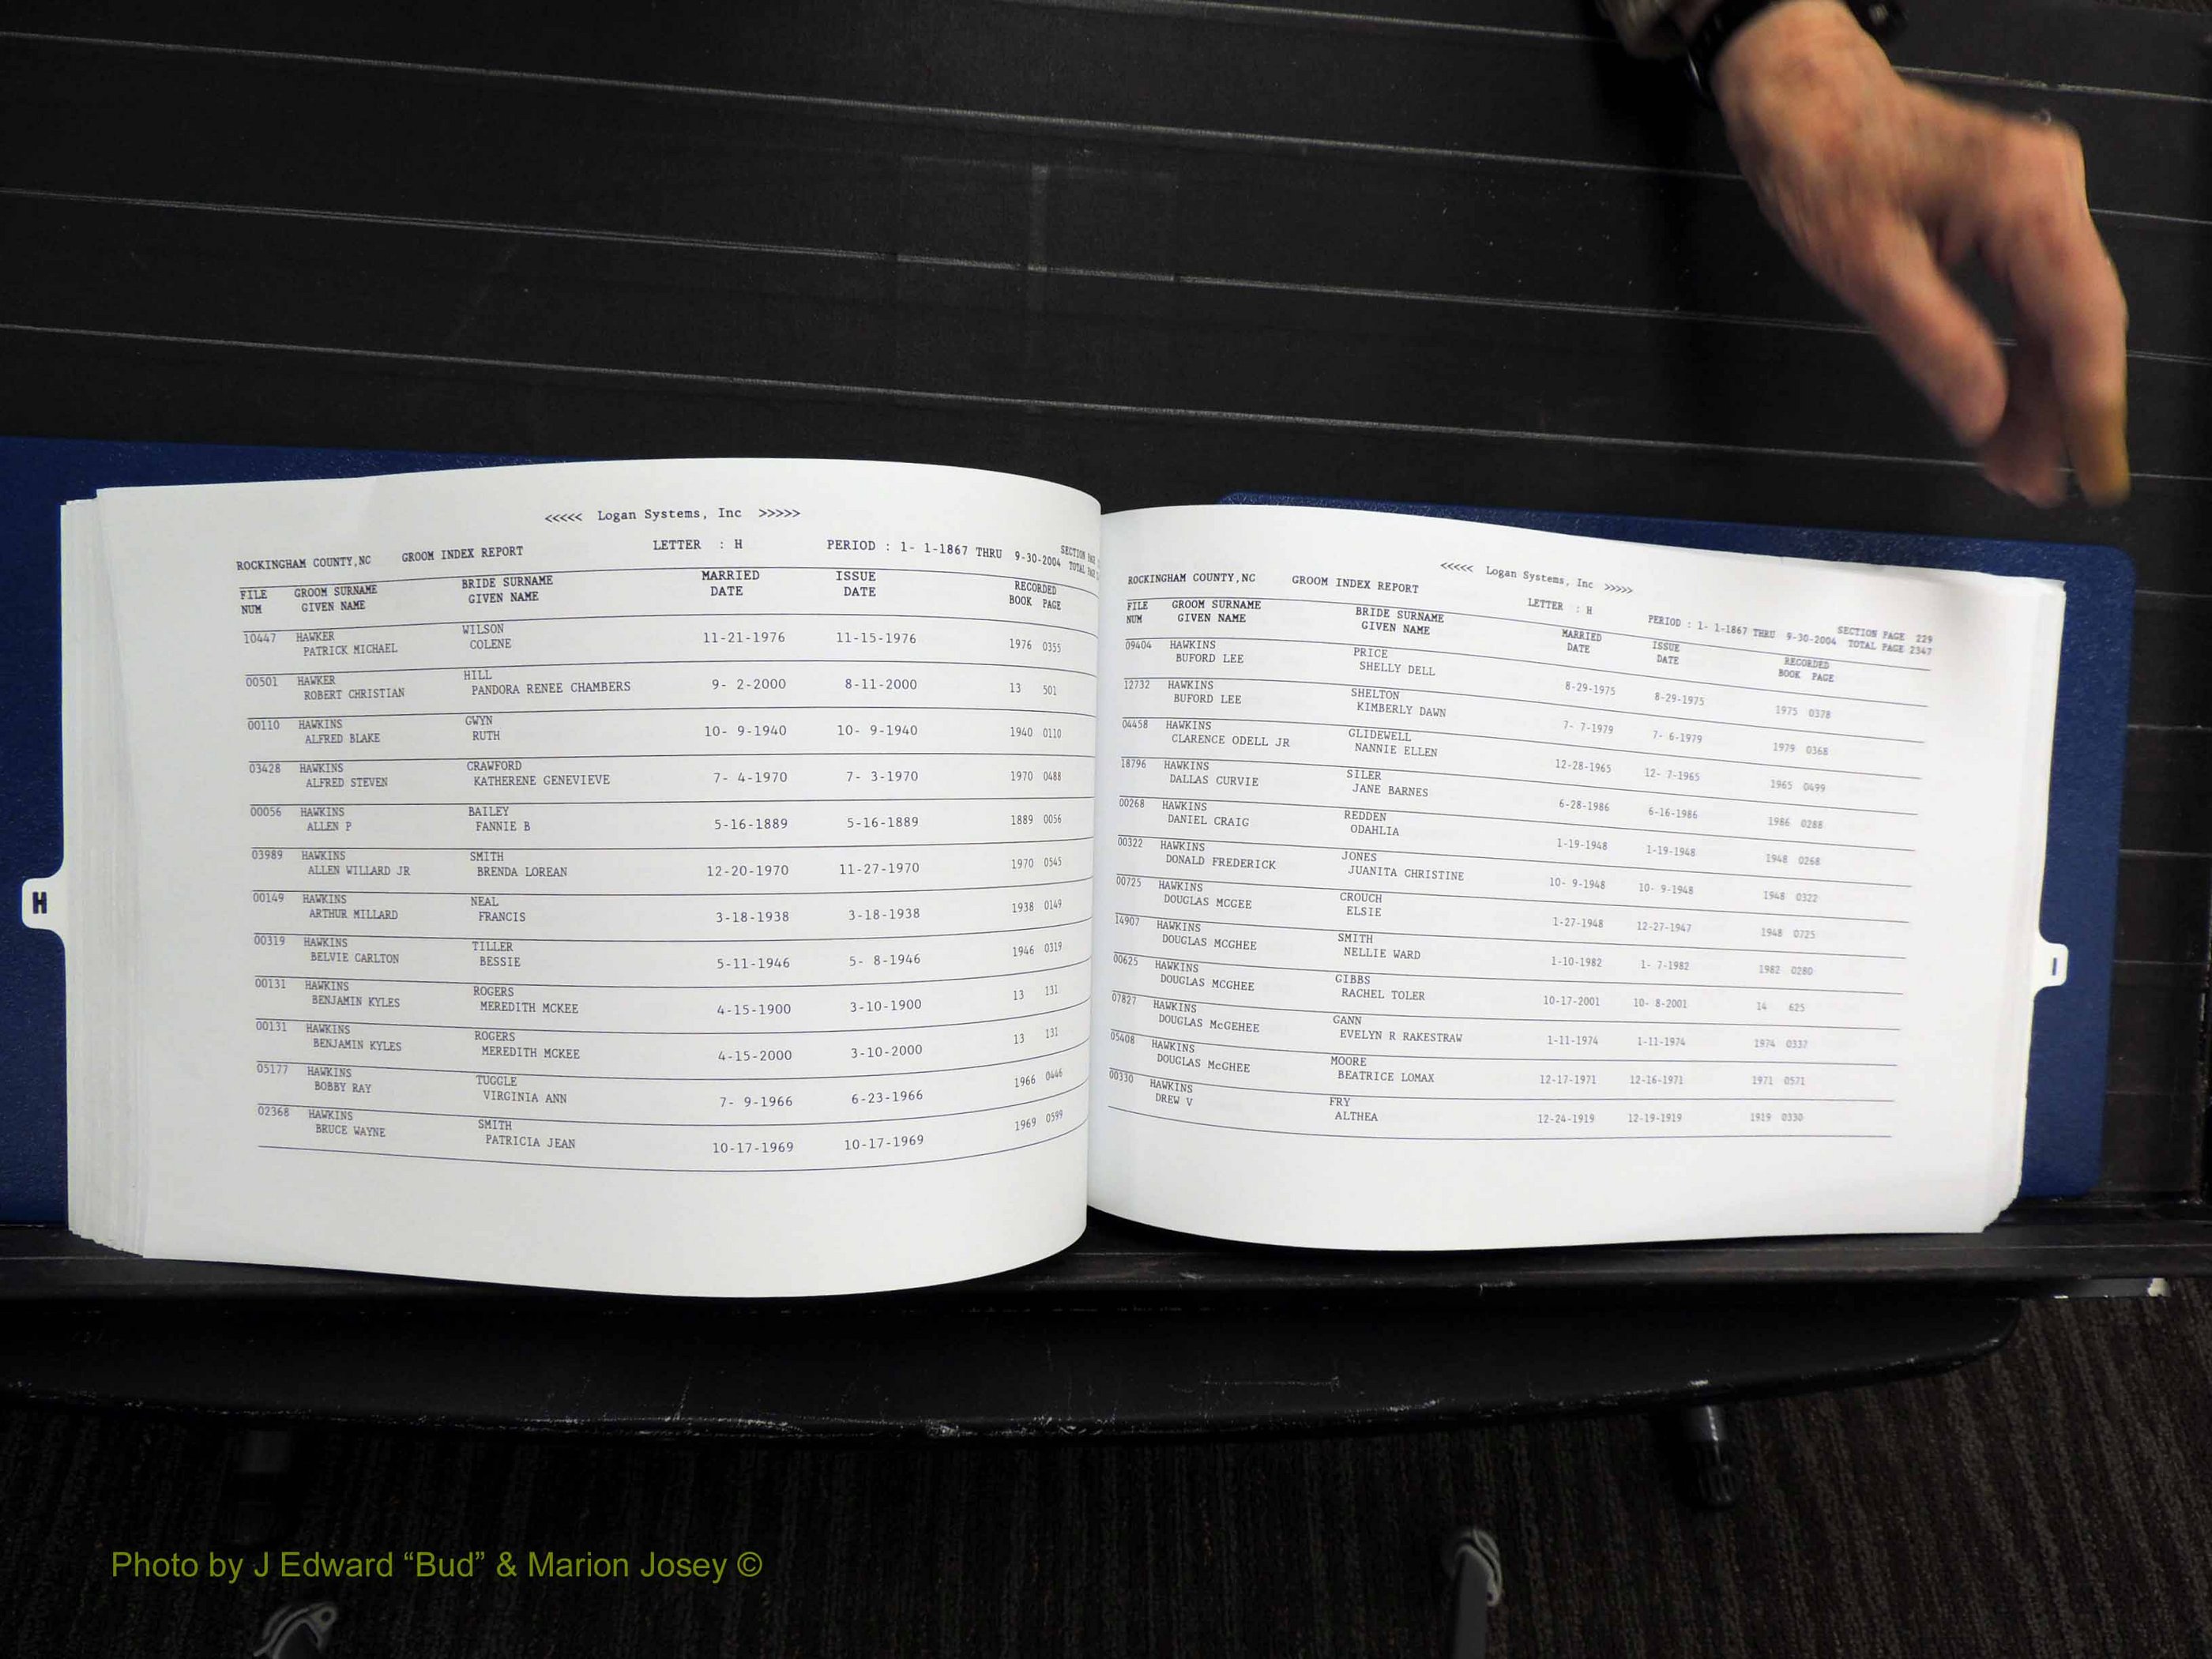 <<<<< Logan Systems, Inc >>>>>
ROCKINGHAM COUNTY,NC GROOM INDEX REPORT LETTER : H PERIOD : 1- 1-1867 THRU 9-30-2004 SECTION
TOTAL
FILE GROOM SURNAME BRIDE SURNAME MARRIED ISSUE RECORDED
NUM GIVEN NAME GIVEN NAME DATE DATE BOOK PAGE
10447 HAWKER WILSON 11-21-1976 11-15-1976 1976 0355
PATRICK MICHAEL COLENE
00501 HAWKER HILL 9- 2-2000 8-11-2000 13 501
ROBERT CHRISTIAN PANDORA RENEE CHAMBERS
00110 HAWKINS GWYN 10- 9-1940 10- 9-1940 1940 0110
ALFRED BLAKE RUTH
03428 HAWKINS CRAWFORD 7- 4-1970 7- 3-1970 1970 0488
ALFRED STEVEN KATHERENE GENEVIEVE
00056 HAWKINS BAILEY 5-16-1889 5-16-1889 1889 0056
ALLEN P FANNIE B
03989 HAWKINS SMITH 12-20-1970 11-27-1970 1970 0545
ALLEN WILLARD JR BRENDA LOREAN
00149 HAWKINS NEAL 3-18-1938 3-18-1938 1938 0149
ARTHUR MILLARD FRANCIS
00319 HAWKINS TILLER 5-11-1946 5- 8-1946 1946 0319
BELVIE CARLTON BESSIE
00131 HAWKINS ROGERS 4-15-1900 3-10-1900 13 131
BENJAMIN KYLES MEREDITH MCKEE
00131 HAWKINS ROGERS 4-15-2000 3-10-2000 13 131
BENJAMIN KYLES MEREDITH MCKEE
05177 HAWKINS TUGGLE 7- 9-1966 6-23-1966 1966 0446
BOBBY RAY VIRGINIA ANN
02368 HAWKINS SMITH 10-17-1969 10-17-1969 1969 0599
BRUCE WAYNE PATRICIA JEAN
H
<<<<< Logan Systems, Inc >>>>>
ROCKINGHAM COUNTY,NC GROOM INDEX REPORT LETTER : H PERIOD : 1- 1-1867 THRU 9-30-2004 SECTION PAGE 229
TOTAL PAGE 2347
FILE GROOM SURNAME BRIDE SURNAME MARRIED ISSUE RECORDED
NUM GIVEN NAME GIVEN NAME DATE DATE BOOK PAGE
09404 HAWKINS PRICE 8-29-1975 8-29-1975 1975 0378
BUFORD LEE SHELLY DELL
12732 HAWKINS SHELTON 7- 7-1979 7- 6-1979 1979 0368
BUFORD LEE KIMBERLY DAWN
04458 HAWKINS GLIDEWELL 12-28-1965 12- 7-1965 1965 0499
CLARENCE ODELL JR NANNIE ELLEN
18796 HAWKINS SILER 6-28-1986 6-16-1986 1986 0288
DALLAS CURVIE JANE BARNES
00268 HAWKINS REDDEN 1-19-1948 1-19-1948 1948 0268
DANIEL CRAIG ODAHLIA
00322 HAWKINS JONES 10- 9-1948 10- 9-1948 1948 0322
DONALD FREDERICK JUANITA CHRISTINE
00725 HAWKINS CROUCH 1-27-1948 12-27-1947 1948 0725
DOUGLAS MCGEE ELSIE
14907 HAWKINS SMITH 1-10-1982 1- 7-1982 1982 0280
DOUGLAS MCGHEE NELLIE WARD
00625 HAWKINS GIBBS 10-17-2001 10- 8-2001 14 625
DOUGLAS MCGHEE RACHEL TOLER
07827 HAWKINS GANN 1-11-1974 1-11-1974 1974 0337
DOUGLAS McGEHEE EVELYN R RAKESTRAW
05408 HAWKINS MOORE 12-17-1971 12-16-1971 1971 0571
DOUGLAS McGHEE BEATRICE LOMAX
00330 HAWKINS FRY 12-24-1919 12-19-1919 1919 0330
DREW V ALTHEA
I
Photo by J Edward “Bud” & Marion Josey ©